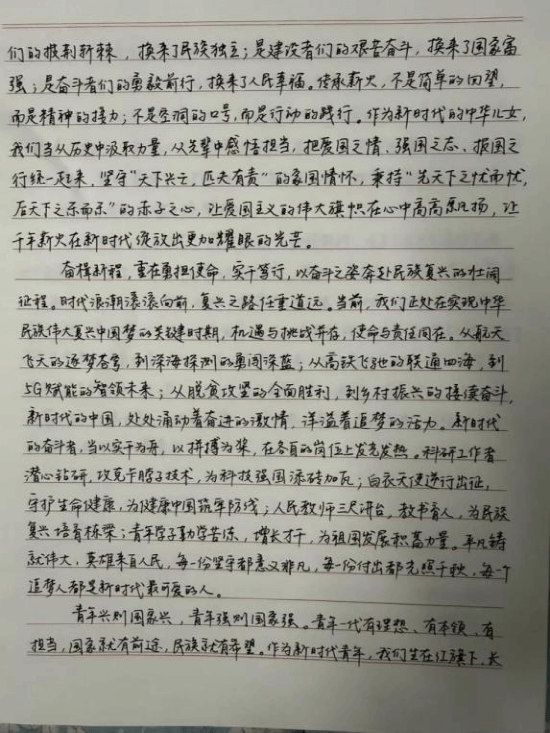 们的披荆斩棘，换来了民族独立；是建设者们的艰苦奋斗，换来了国家富
强；是奋斗者们的勇毅前行，换来了人民幸福。传承薪火，不是简单的回望，
而是精神的接力；不是空洞的口号，而是行动的践行。作为新时代的中华儿女，
我们当从历史中汲取力量，从先辈中感悟担当，把爱国之情、强国之志、报国之
行统一起来，坚守“天下兴亡，匹夫有责”的家国情怀，秉持“先天下之忧而忧，
后天下之乐而乐”的赤子之心，让爱国主义的伟大旗帜在心中高高飘扬，让
千年薪火在新时代绽放出更加耀眼的光芒。
奋楫新程，重在勇担使命，实干笃行，以奋斗之姿奔赴民族复兴的壮阔
征程。时代浪潮滚滚向前，复兴之路任重道远。当前，我们正处在实现中华
民族伟大复兴中国梦的关键时期，机遇与挑战并存，使命与责任同在。从航天
飞天的逐梦苍穹，到深海探测的勇闯深蓝；从高铁飞驰的联通四海，到
5G赋能的智领未来；从脱贫攻坚的全面胜利，到乡村振兴的接续奋斗，
新时代的中国，处处涌动着奋进的激情，洋溢着追梦的活力。新时代
的奋斗者，当以实干为舟，以拼搏为桨，在各自的岗位上发光发热。科研工作者
潜心钻研，攻克卡脖子技术，为科技强国添砖加瓦；白衣天使逆行出征，
守护生命健康，为健康中国筑牢防线；人民教师三尺讲台，教书育人，为民族
复兴培育栋梁；青年学子勤学苦练，增长才干，为祖国发展积蓄力量。平凡铸
就伟大，英雄来自人民，每一份坚守都意义非凡，每一份付出都光照千秋，每一个
追梦人都是新时代最可爱的人。
青年兴则国家兴，青年强则国家强。青年一代有理想、有本领、有
担当，国家就有前途，民族就有希望。作为新时代青年，我们生在红旗下，长